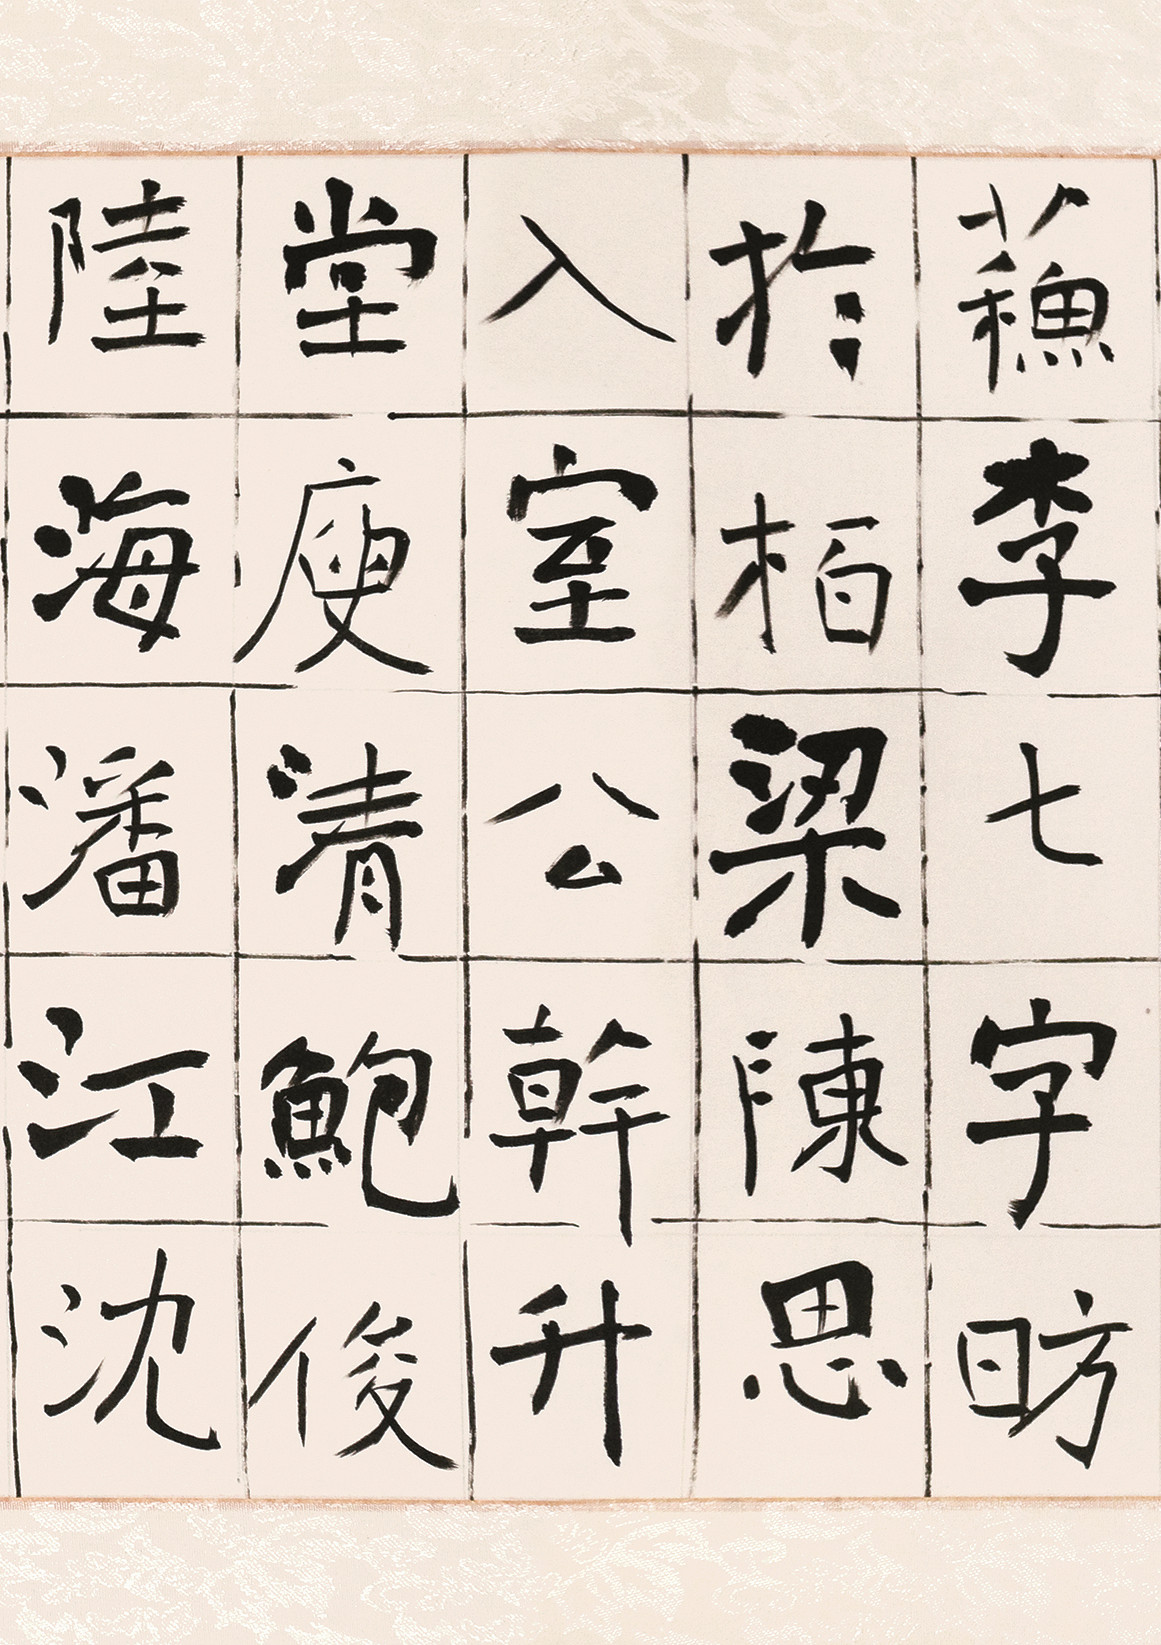 蘓李七字昉
扵栢梁陳思
入室公幹升
堂庾清鮑俊
陸海潘江沈